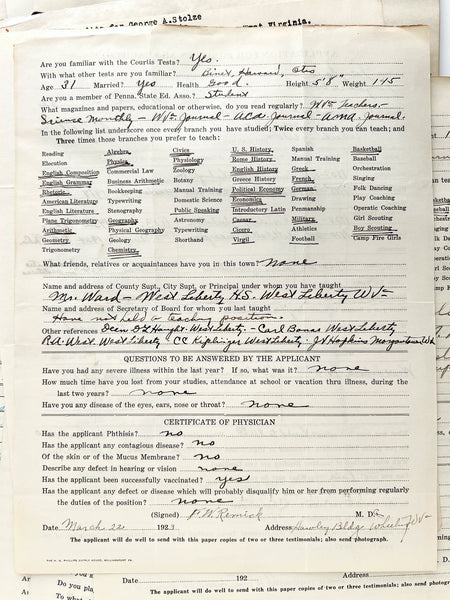 for George A. Stolze
West Virginia.
Are you familiar with the Courtis Tests? Yes.
With what other tests are you familiar? Binet, Harvard, Otis
Age 31 Married? Yes Health Good. Height 5'8" Weight 145
Are you a member of Penna. State Ed. Asso.? Student
What magazines and papers, educational or otherwise, do you read regularly? WVa Teachers-
Science Monthly - WVa Journal - ACS Journal - AMA Journal.
In the following list underscore once every branch you have studied; Twice every branch you can teach; and
Three times those branches you prefer to teach:
Reading Algebra Civics U. S. History Spanish Basketball
Elocution Physics Physiology Rome History Manual Training Baseball
English Composition Commercial Law Zoology English History Greek Orchestration
English Grammar Business Arithmetic Botany Greece History French Singing
Rhetoric Bookkeeping Manual Training Political Economy German Folk Dancing
American Literature Typewriting Domestic Science Economics Drawing Play Coaching
English Literature Stenography Public Speaking Introductory Latin Penmanship Operatic Coaching
Plane Trigonometry Geography Astronomy Caesar Military Girl Scouting
Arithmetic Physical Geography Typewriting Cicero Athletics Boy Scouting
Geometry Geology Shorthand Virgil Football Camp Fire Girls
Trigonometry Chemistry
What friends, relatives or acquaintances have you in this town? none
Name and address of County Supt., City Supt. or Principal under whom you have taught
Mr. Ward - West Liberty H.S. West Liberty WVa
Name and address of Secretary of Board for whom you last taught
Have not held a teaching position.
Other references Dean D L Haught West Liberty - Carl Bonar West Liberty
West. West Liberty CC Kiplinger West Liberty - Hopkins Morgantown
QUESTIONS TO BE ANSWERED BY THE APPLICANT
Have you had any severe illness within the last year? If so, what was it? none
How much time have you lost from your studies, attendance at school or vacation thru illness, during the
last two years? none
Have you any disease of the eyes, ears, nose or throat? none
CERTIFICATE OF PHYSICIAN
Has the applicant Phthisis? no
Has the applicant any contagious disease? no
Of the skin or of the Mucus Membrane? no
Describe any defect in hearing or vision none
Has the applicant been successfully vaccinated? yes
Has the applicant any defect or disease which will probably disqualify him or her from performing regularly
the duties of the position? none
(Signed) P. W. Remick M. D.
Date March 22 1923 Address Hawley Bldg Wheeling WVa
The applicant will do well to send with this paper copies of two or three testimonials; also send photograph.
192
The applicant will do well to send with this paper copies of two or three testimonials; also send photograph